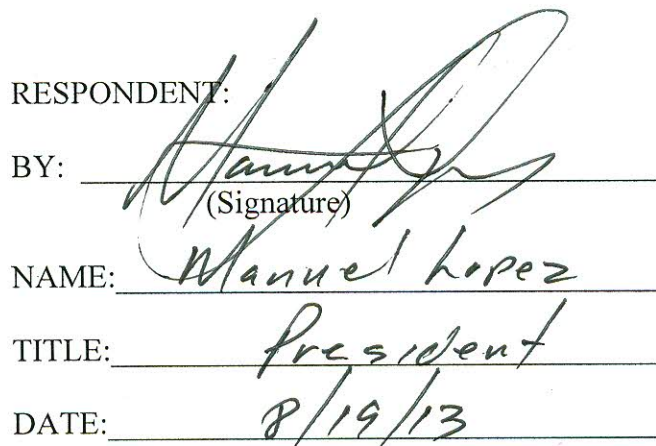 RESPONDENT:
BY:
(Signature)
NAME: Manuel Lopez
TITLE: President
DATE: 8/19/13